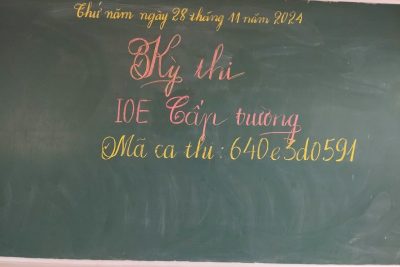 Thứ năm ngày 28 tháng 11 năm 2024
Kỳ thi
IOE Cấp trường
Mã ca thi: 640e3d0591